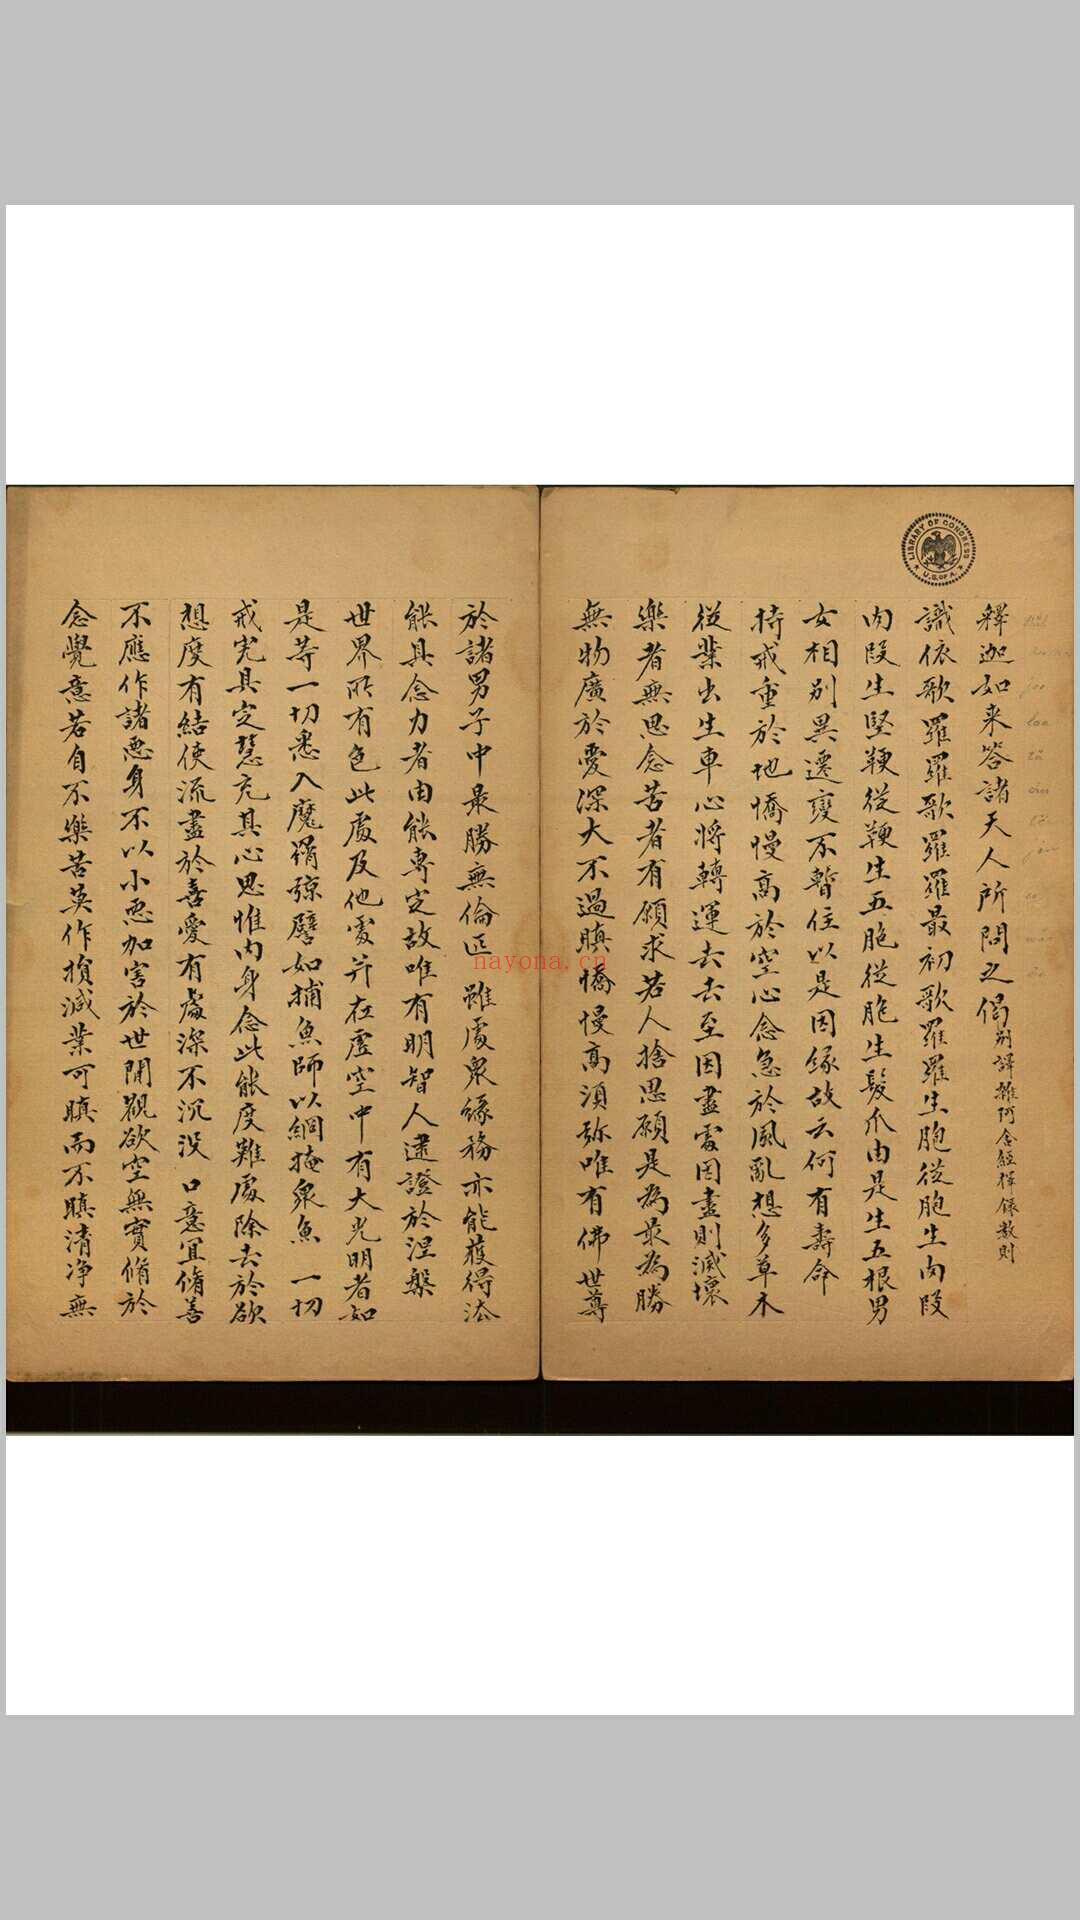 釋迦如来答諸天人所問之偈 別譯雜阿含經擇録数則
識依歌羅羅歌羅羅最初歌羅羅生胞從胞生肉段
肉段生堅鞕從鞕生五胞從胞生髮爪由是生五根男
女相別異遷變不暫住以是因緣故云何有壽命
持戒重於地憍慢高於空心念急於風亂想多草木
從業出生車心將轉運去去至因盡處因盡則滅壞
樂者無思念苦者有願求若人捨思願是為最為勝
無物廣於愛深大不過瞋憍慢高須弥唯有佛世尊
於諸男子中最勝無倫匹 雖處衆緣務亦能獲得法
能具念力者由能專定故唯有明智人逮證於涅槃
世界所有色此處及他處并在虛空中有大光明者如
是等一切悉入魔罥弶譬如捕魚師以網掩衆魚 一切
戒完具定慧充其心思惟內身念此能度難處除去於欲
想度有結使流盡於喜愛有處深不沉没 口意宜脩善
不應作諸惡身不以小惡加害於世間觀欲空無實脩於
念覺意若自不樂苦莫作損減業可瞋而不瞋清净無
LIBRARY OF CONGRESS
U.S. OF A.
nayona.cn